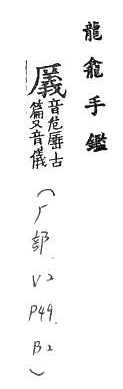 龍龕手鑑
㕒音危厜古
篇又音儀
(厂部.V2
P49.
B2)